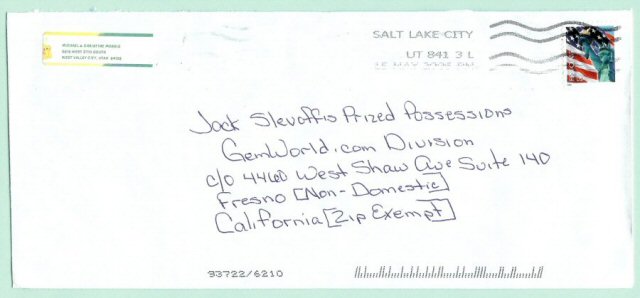 MICHAEL & CHRISTINE MORRIS
WEST VALLEY CITY, UTAH
SALT LAKE CITY
UT 841 3 L
MAY
Jack Slevoffis Prized Possessions
GemWorld.com Division
c/o 4460 West Shaw Ave Suite 140
Fresno [Non-Domestic]
California [Zip Exempt]
93722/6210